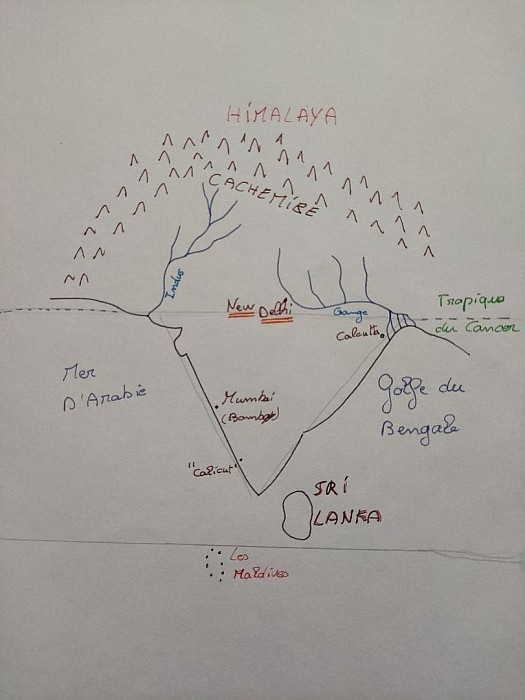 HIMALAYA
CACHEMIRE
Indus
New Delhi
Gange
Tropique
du Cancer
Calcutta
Mer
D'Arabie
Golfe du
Bengale
Mumbai
(Bombay)
"Calicut"
SRI
LANKA
Les
Maldives